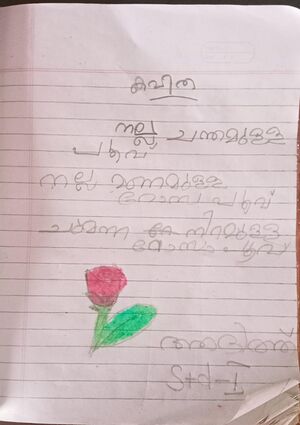 കവിത
നല്ല ചന്തമുള്ള
പൂവ്
നല്ല മണമുള്ള
റോസ പൂവ്
ചുമന്ന നിറമുള്ള
റോസാ പൂവ്
Std-I